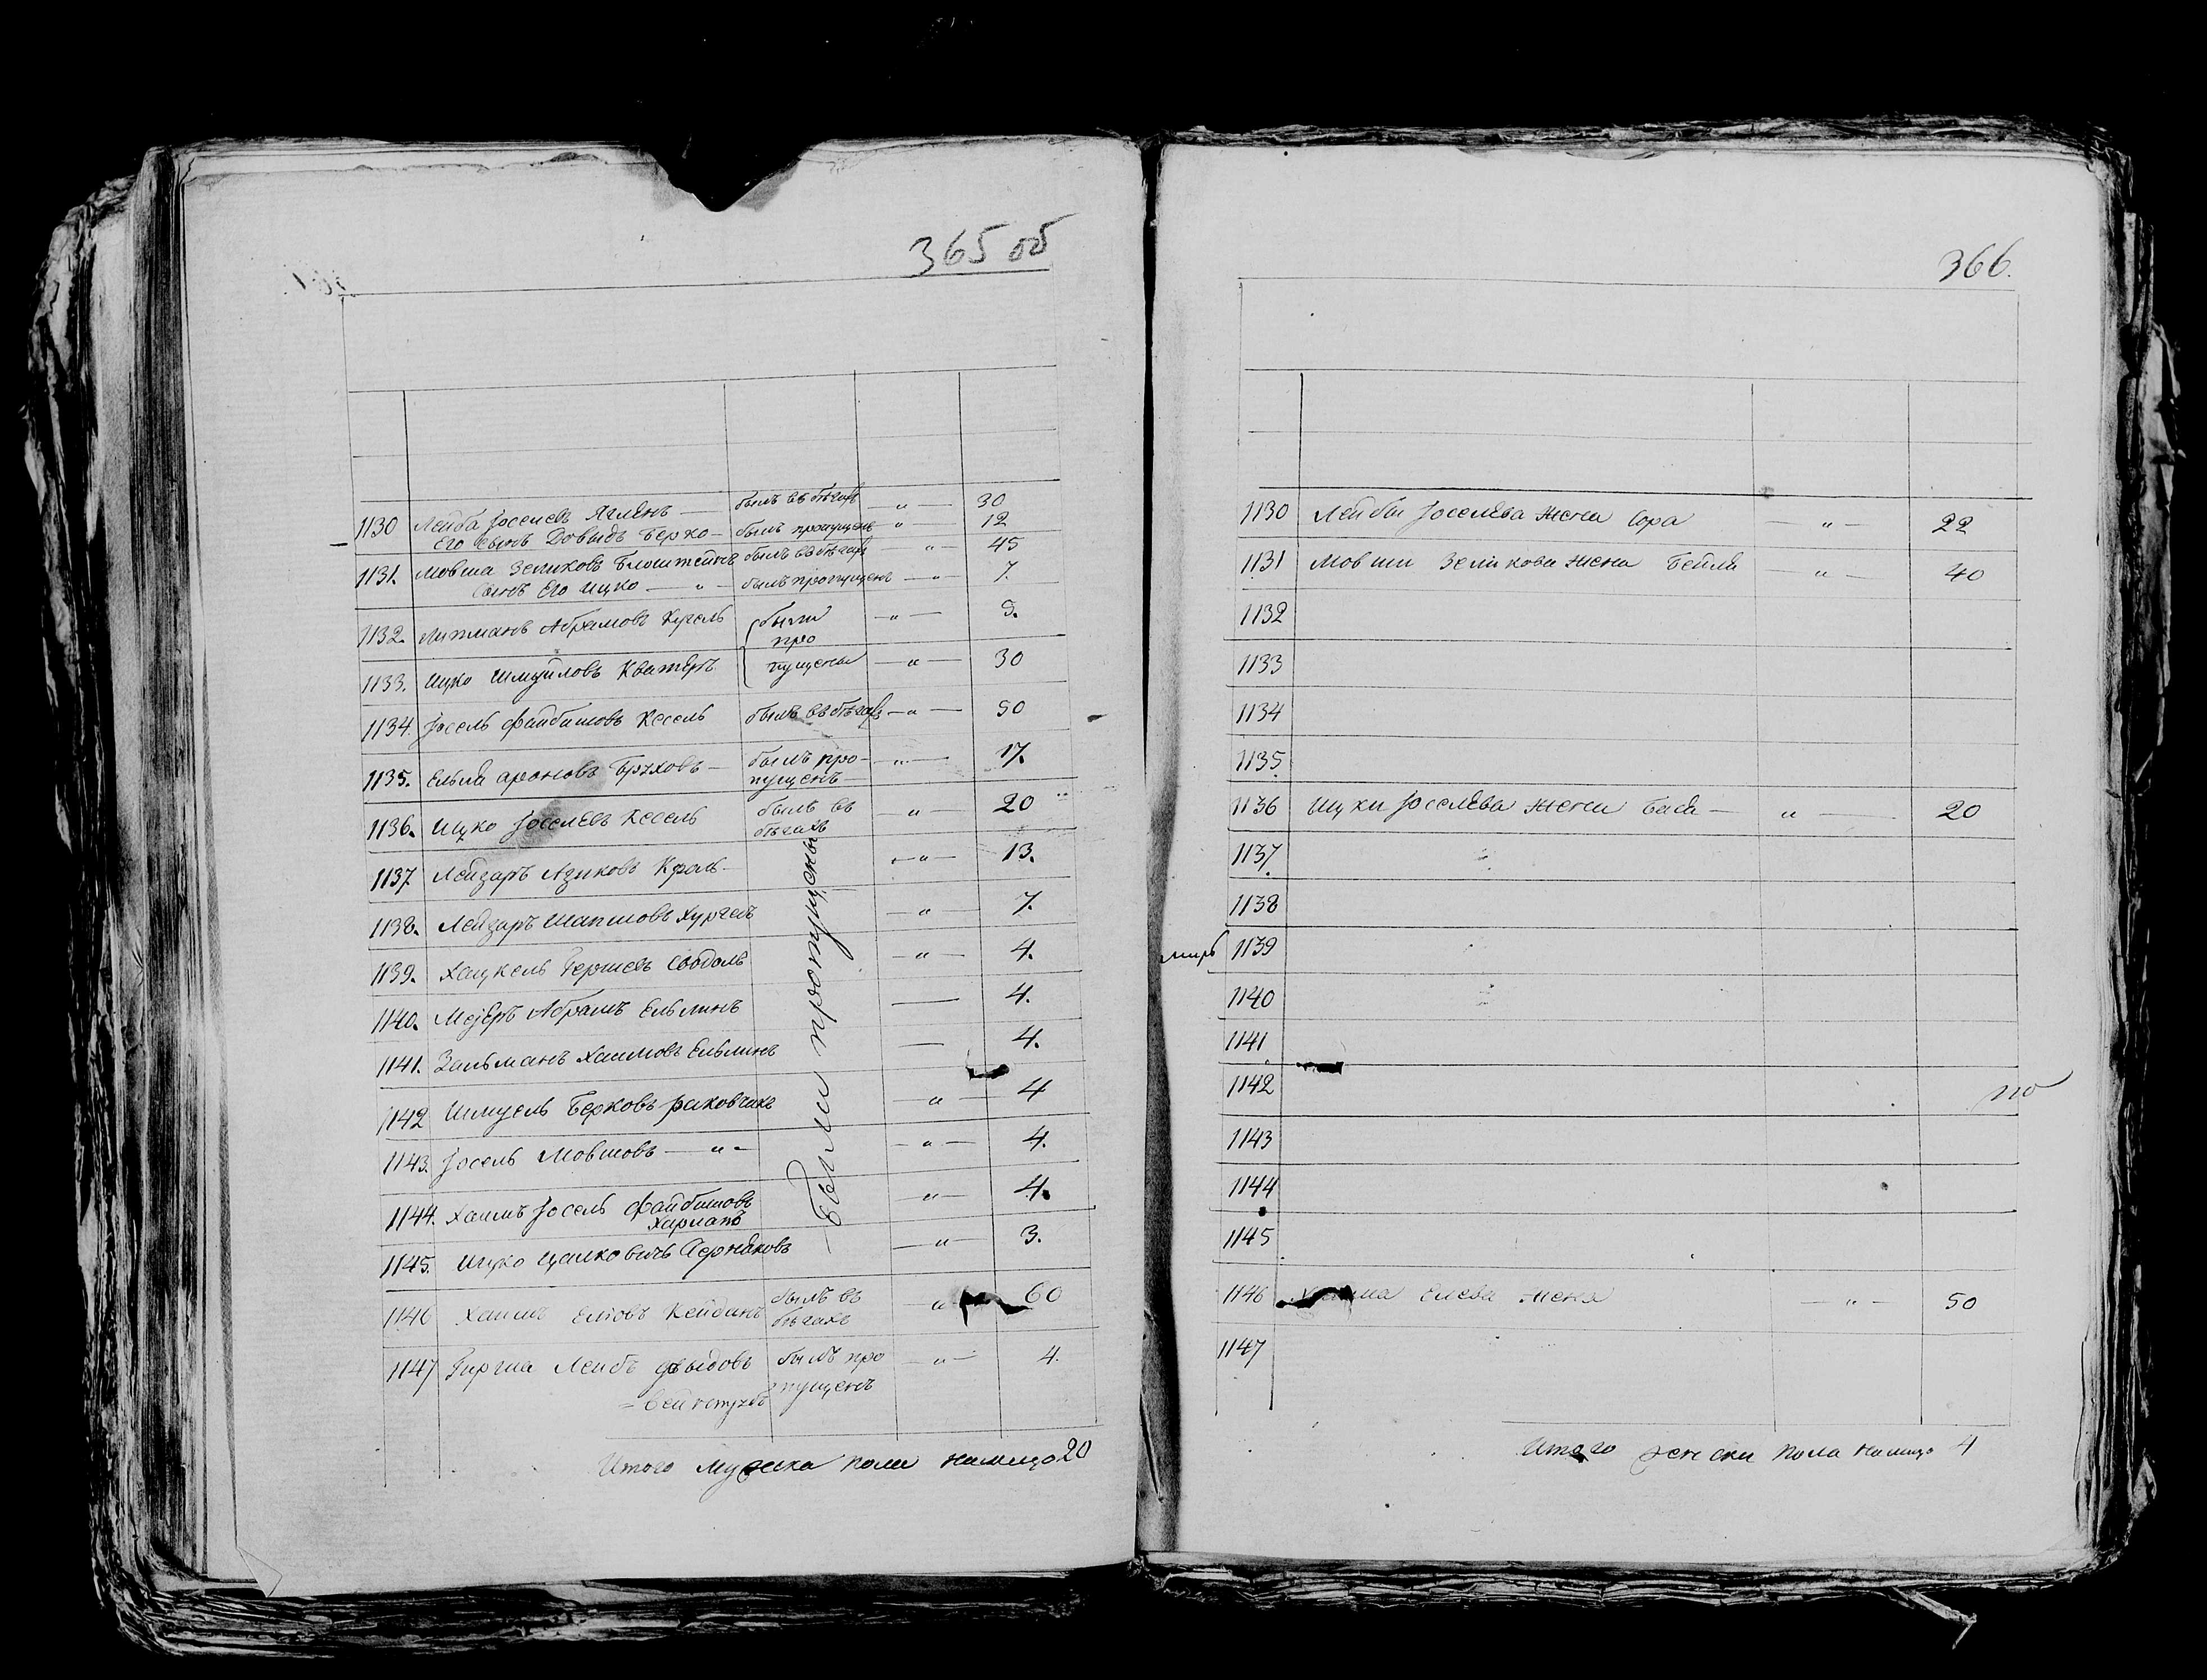 365 об
1130 Лейба Іоселевъ Яглинъ — былъ въ бѣгахъ — " — 30
Его сынъ Довыдъ Берко — былъ пропущенъ " 12
1131. Мовша Зеликовъ Блюштейнъ былъ въ бѣгахъ — " — 45
Сынъ Его Ицко — " — былъ пропущенъ — " — 7.
1132. Липманъ Абрамовъ были — " —
про
1133. Ицко Шмуйловъ Кватеръ пущены — " — 30
1134. Іосель Файбишовъ Кесель былъ въ бѣгахъ — " — 50
1135. Ельяа Ароновъ Бруховъ — былъ про- — " — 17.
пущенъ
1136. Ицко Іоселевъ Кесель былъ въ — " — 20
бѣгахъ
1137. Лейзаръ Азиковъ — " — 13.
1138. Лейзаръ Шапшовъ Хургелъ — " — 7.
1139. Хацкель Гершевъ Соболь — " — 4.
1140. Мејеръ Абрамъ Ельлинъ — 4.
1141. Зальманъ Хаимовъ Ельлинъ — 4.
1142 Шмуель Берковъ Раковчикъ — " — 4
1143. Іосель Мовшовъ — " — — " — 4.
1144. Хаимъ Іосель Файбишовъ — " — 4.
Харлапъ
1145. Ицко Цалковичъ Черняковъ — " — 3.
— Были пропущены
1146 Хаимъ Еліовъ Кейданъ былъ въ — " — 60
бѣгахъ
1147 Гирша Лейбъ былъ про — " — 4.
пущенъ
Итого мужска пола налицо 20
366.
1130 Лейбы Іоселева жена Сора — " — 22
1131 Мовши Зеликова жена Бейля — " — 40
1132
1133
1134
1135
1136 Ицки Іоселева жена Бася — " — 20
1137.
1138
1139
1140
1141
1142 по
1143
1144
1145
1146 Хаима Елева жена — " — 50
1147
Итого женска пола налицо 4